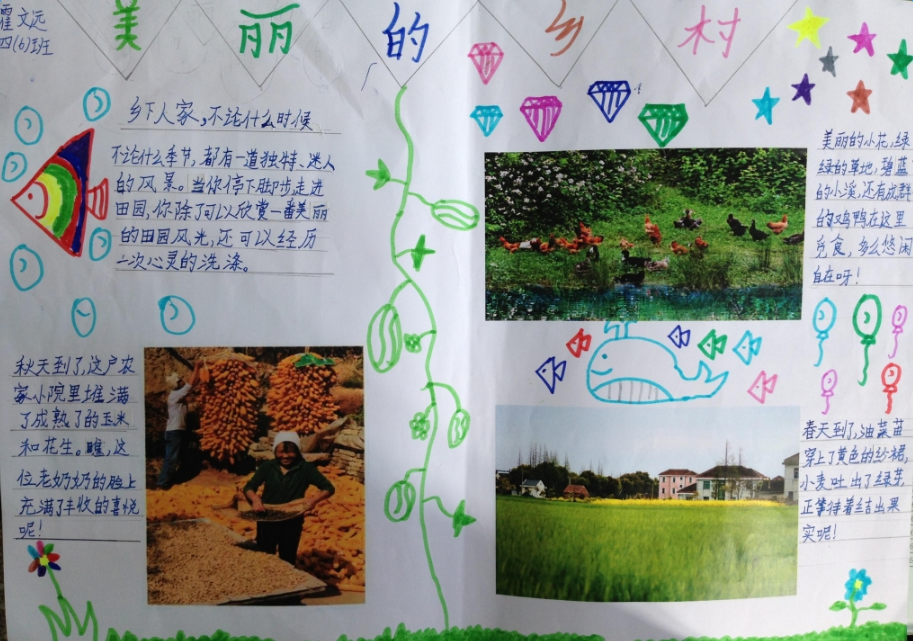 霍文远
四(6)班
美丽的乡村
乡下人家,不论什么时候
不论什么季节,都有一道独特、迷人
的风景。当你停下脚步走进
田园,你除了可以欣赏一番美丽
的田园风光,还可以经历
一次心灵的洗涤。
美丽的小花,绿
绿的草地,碧蓝
的小溪,还有成群
的鸡鸭在这里
觅食,多么悠闲
自在呀!
秋天到了,这户农
家小院里堆满
了成熟了的玉米
和花生。瞧,这
位老奶奶的脸上
充满了丰收的喜悦
呢!
春天到了,油菜苗
穿上了黄色的纱裙,
小麦吐出了绿芽,
正等待着结出果
实呢!